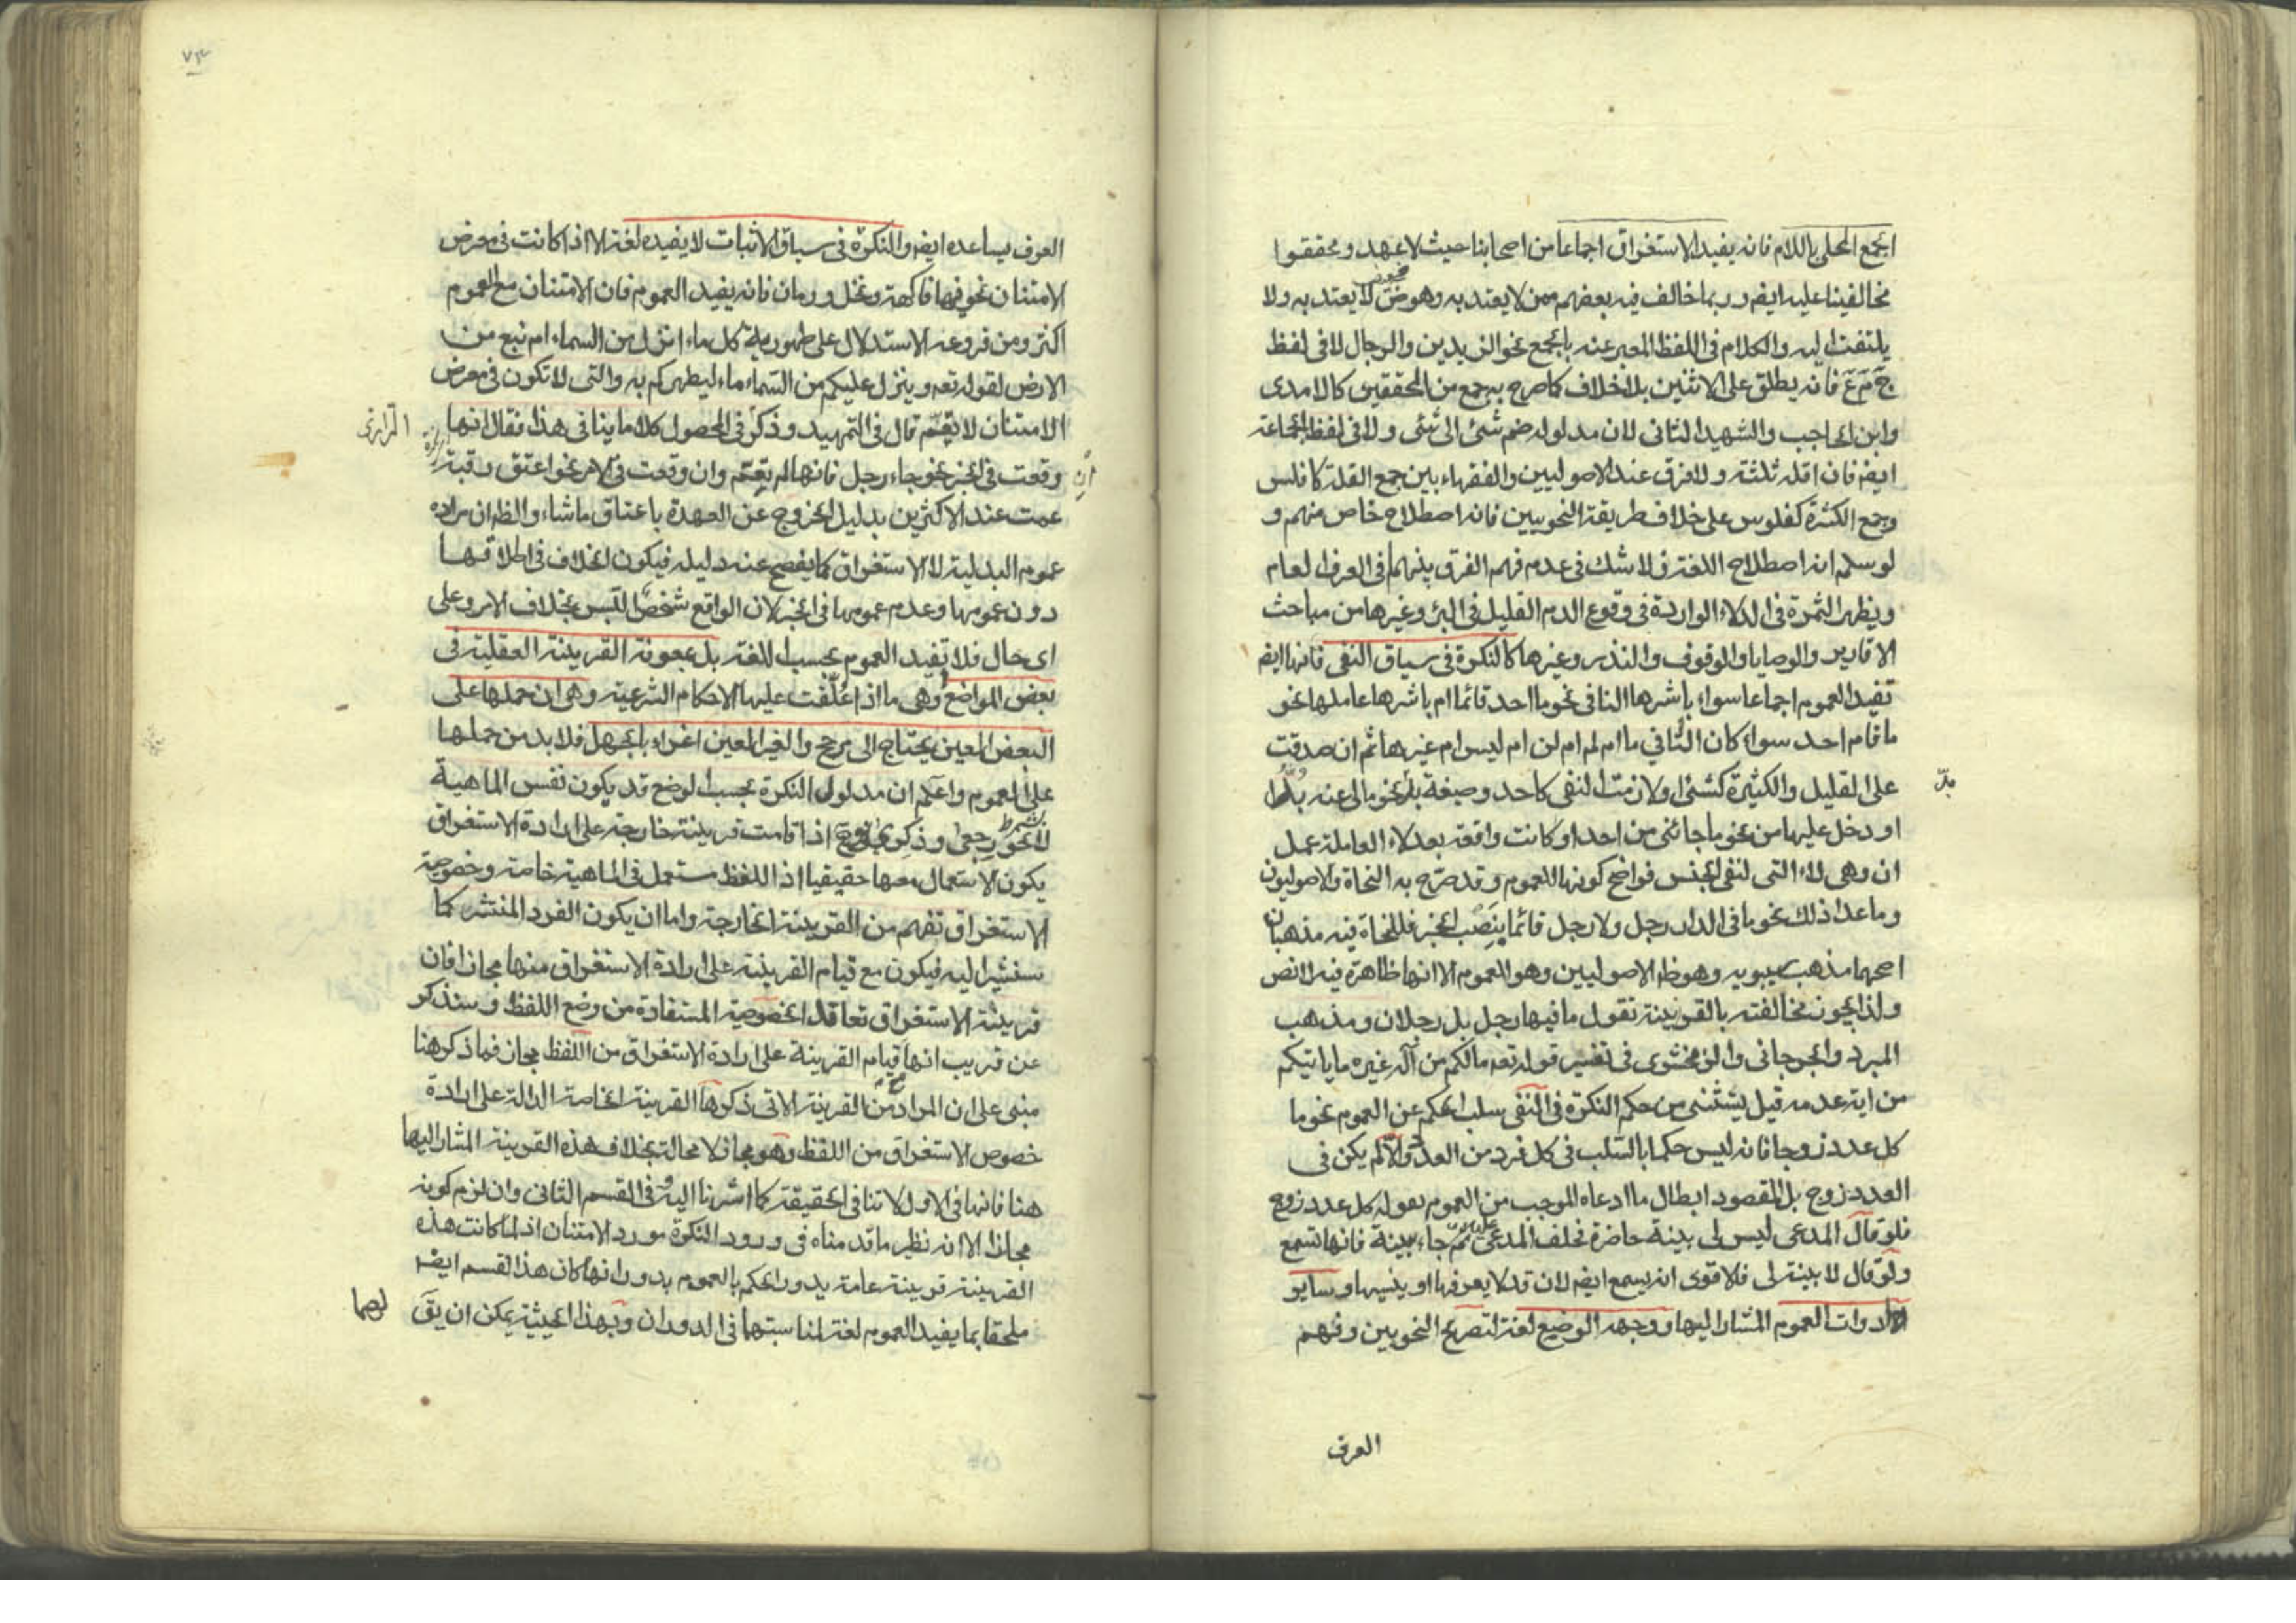 الجمع المحلى باللام فانه يفيد الاستغراق اجماعا من اصحابنا حيث لا عهد ومحققوا
مخالفينا عليه ايضو وربما خالف فيه بعضهم ممن لا يعتد به وهو لا يعتد به ولا
يلتفت اليه والكلام فى اللفظ المعبر عنه بالجمع نحو الزيدين والرجال لا فى لفظ
ج م ع فانه يطلق على الاثنين بلا خلاف كما صرح به جمع من المحققين كالامدى
وابن الحاجب والشهيد الثانى لان مدلوله ضم شئ الى شئ ولا فى لفظ الجماعة
ايضو فان اقله ثلثة ولا فرق عند الاصوليين والفقهاء بين جمع القلة كافلس
وجمع الكثرة كفلوس على خلاف طريقة النحويين فانه اصطلاح خاص منهم و
لو سلم انه اصطلاح اللغة فلا شك فى عدم فهم الفرق بينهما فى العرف العام
ويظهر الثمرة فى الدلاء الواردة فى وقوع الدم القليل فى البئر وغيرها من مباحث
الاقارير والوصايا والوقوف والنذر وغيرها كالنكرة فى سياق النفى فانها ايضو
تفيد العموم اجماعا سواء باشرها النافى نحو ما احد قائما ام باشرها عاملها نحو
ما قام احد سواء كان النافي ما ام لم ام لن ام ليس ام غيرها ثم ان صدقت
على القليل والكثيرة كشئ او لازمت النفى كاحد وصيغة بد نحو مالى عنه بد
بد
او دخل عليها من نحو ما جائنى من احد او كانت واقعة بعد لاء العاملة عمل
ان وهى لاء التى لنفى الجنس فواضح كونها للعموم وقد صرح به النحاة والاصوليون
وما عدا ذلك نحو ما فى الدار رجل ولا رجل قائما بنصب الخبر فللنحاة فيه مذهبان
اصحهما مذهب سيبويه وهو ظ الاصوليين وهو العموم الا انها ظاهرة فيه لا نص
ولذا يجوز مخالفته بالقرينة تقول ما فيها رجل بل رجلان ومذهب
المبرد والجرجانى والزمخشرى فى تفسير قوله تعه مالكم من اله غيره ما ياتيكم
من اية عدمه قيل يستثنى من حكم النكرة فى النفى سلب الحكم عن العموم نحو ما
كل عدد زوجا فانه ليس حكما بالسلب فى كل فرد من العدد والا لم يكن فى
العدد زوج بل المقصود ابطال ما ادعاه الموجب من العموم بقوله كل عدد زوج
فلو قال المدعى ليس لى بينة حاضرة فحلف المدعى عليه ثم جاء ببينة فانها تسمع
ولو قال لا بينة لى فالاقوى انه يسمع ايضو لانه قد لا يعرفها او ينسيها وساير
ادوات العموم المشار اليها ووجهه الوضع لغة لتصريح النحويين وفهم
العرف
٧٣
العرف يساعده ايضو والنكرة فى سياق الاثبات لا يفيده لغة الا اذا كانت فى معرض
الامتنان نحو فيها فاكهة ونخل ورمان فانه يفيد العموم فان الامتنان مع العموم
اكثر ومن فروعه الاستدلال على طهورية كل ماء انزل من السماء ام نبع من
الارض لقوله تعه وينزل عليكم من السماء ماء ليطهركم به والتى لا تكون فى معرض
الامتنان لا تعم قال فى التمهيد وذكر فى المحصول كلاما ينافى هذا فقال انها
وقعت فى الخبر نحو جاء رجل فانها لم تعم وان وقعت فى الامر نحو اعتق رقبة
ان
عمت عند الاكثرين بدليل الخروج عن العهدة باعتاق ما شاء والظ ان مراده
عموم البدلية لا الاستغراق كما يفصح عنه دليله فيكون الخلاف فى اطلاقها
دون عمومها وعدم عمومها فى الخبر لان الواقع شخص للبس بخلاف الامر وعلى
اى حال فلا تفيد العموم بحسب اللغة بل بمعونة القرينة العقلية فى
بعض المواضع وهى ما اذا علقت عليها الاحكام الشرعية وهى ان حملها على
البعض المعين يحتاج الى مرجح والغير المعين اغراء بالجهل فلا بد من حملها
على العموم واعلم ان مدلول النكرة بحسب الوضع قد يكون نفس الماهية
لا بشرط نحو رجعى وذكرى اذا قامت قرينة خارجة على ارادة الاستغراق
يكون الاستعمال معها حقيقيا اذ اللفظ مستعمل فى الماهية خاصة وخصوصية
الاستغراق تفهم من القرينة الخارجة واما ان يكون الفرد المنتشر كما
سنشير اليه فيكون مع قيام القرينة على ارادة الاستغراق منها مجازا فان
قرينة الاستغراق تعاقد الخصوصية المستفادة من وضع اللفظ وسنذكر
عن قريب انها قيام القرينة على ارادة الاستغراق من اللفظ مجاز فما ذكر هنا
مبنى على ان المراد من القرينة الاتى ذكرها القرينة الخاصة الدالة على ارادة
خصوص الاستغراق من اللفظ وهو مجاز لا محالة بخلاف هذه القرينة المشار اليها
هنا فانها فى الاول لا تنافى الحقيقة كما اشرنا اليه وفى القسم الثانى وان لزم كونه
مجازا الا انه نظير ما قدمناه فى ورود النكرة مورد الامتنان اذ لما كانت هذه
القرينة قرينة عامة يدور الحكم بالعموم بدورانها كان هذا القسم ايضو
ملحقا بما يفيد العموم لغة لمناسبتهما فى الدوران وبهذا الحيثية يمكن ان يق